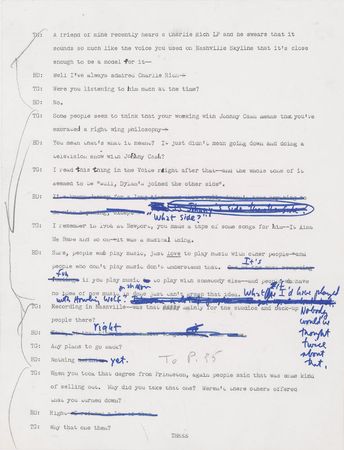 TG: A friend of mine recently heard a Charlie Rich LP and he swears that it
sounds so much like the voice you used on Nashville Skyline that it's close
enough to be a model for it--
BD: Well I've always admired Charlie Rich--
TG: Were you listening to him much at the time?
BD: No.
TG: Some people seem to think that your working with Johnny Cash means that you've
embraced a right wing philosophy--
BD: You mean that's what it means? I just didn't mean going down and doing a
television show with Johnny Cash?
TG: I read this thing in the Voice right after that--and the whole tone of it
seemed to be "well, Dylan's joined the other side".
BD:
"What side?"
TG: I remember in 1964 at Newport, you made a tape of some songs for him--It Ain't
Me Babe and so on--it was a musical thing.
BD: Sure, people who play music, just love to play music with other people--and
people who don't play music don't understand that. It's
fun if you play music to play with somebody else--and people who have
no idea of
What if I'd have played
with Howlin' Wolf?
Nobody
would've
thought
twice
about
that.
TG: Recording in Nashville--was that mainly for the studios and back-up
people there?
BD: right
TG: Any plans to go back?
BD: Nothing yet. To P. 25
TG: When you took that degree from Princeton, again people said that was some kind
of selling out. Why did you take that one? Weren't there others offered
that you turned down?
BD: Right
TG: Why that one then?
THREE